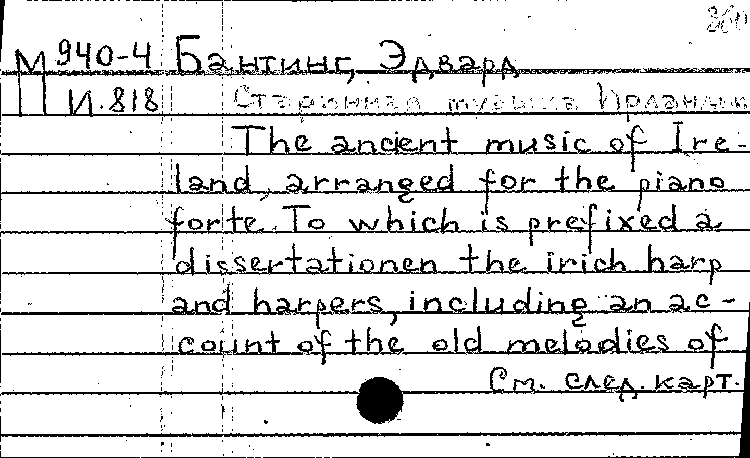 360
М 940-4 Бантинг, Эдвард
И.818 Старинная музыка Ирландии
The ancient music of Ire-
land, arranged for the piano
forte. To which is prefixed a
dissertationen the irich harp
and harpers, including an ac-
count of the old melodies of
См. след. карт.